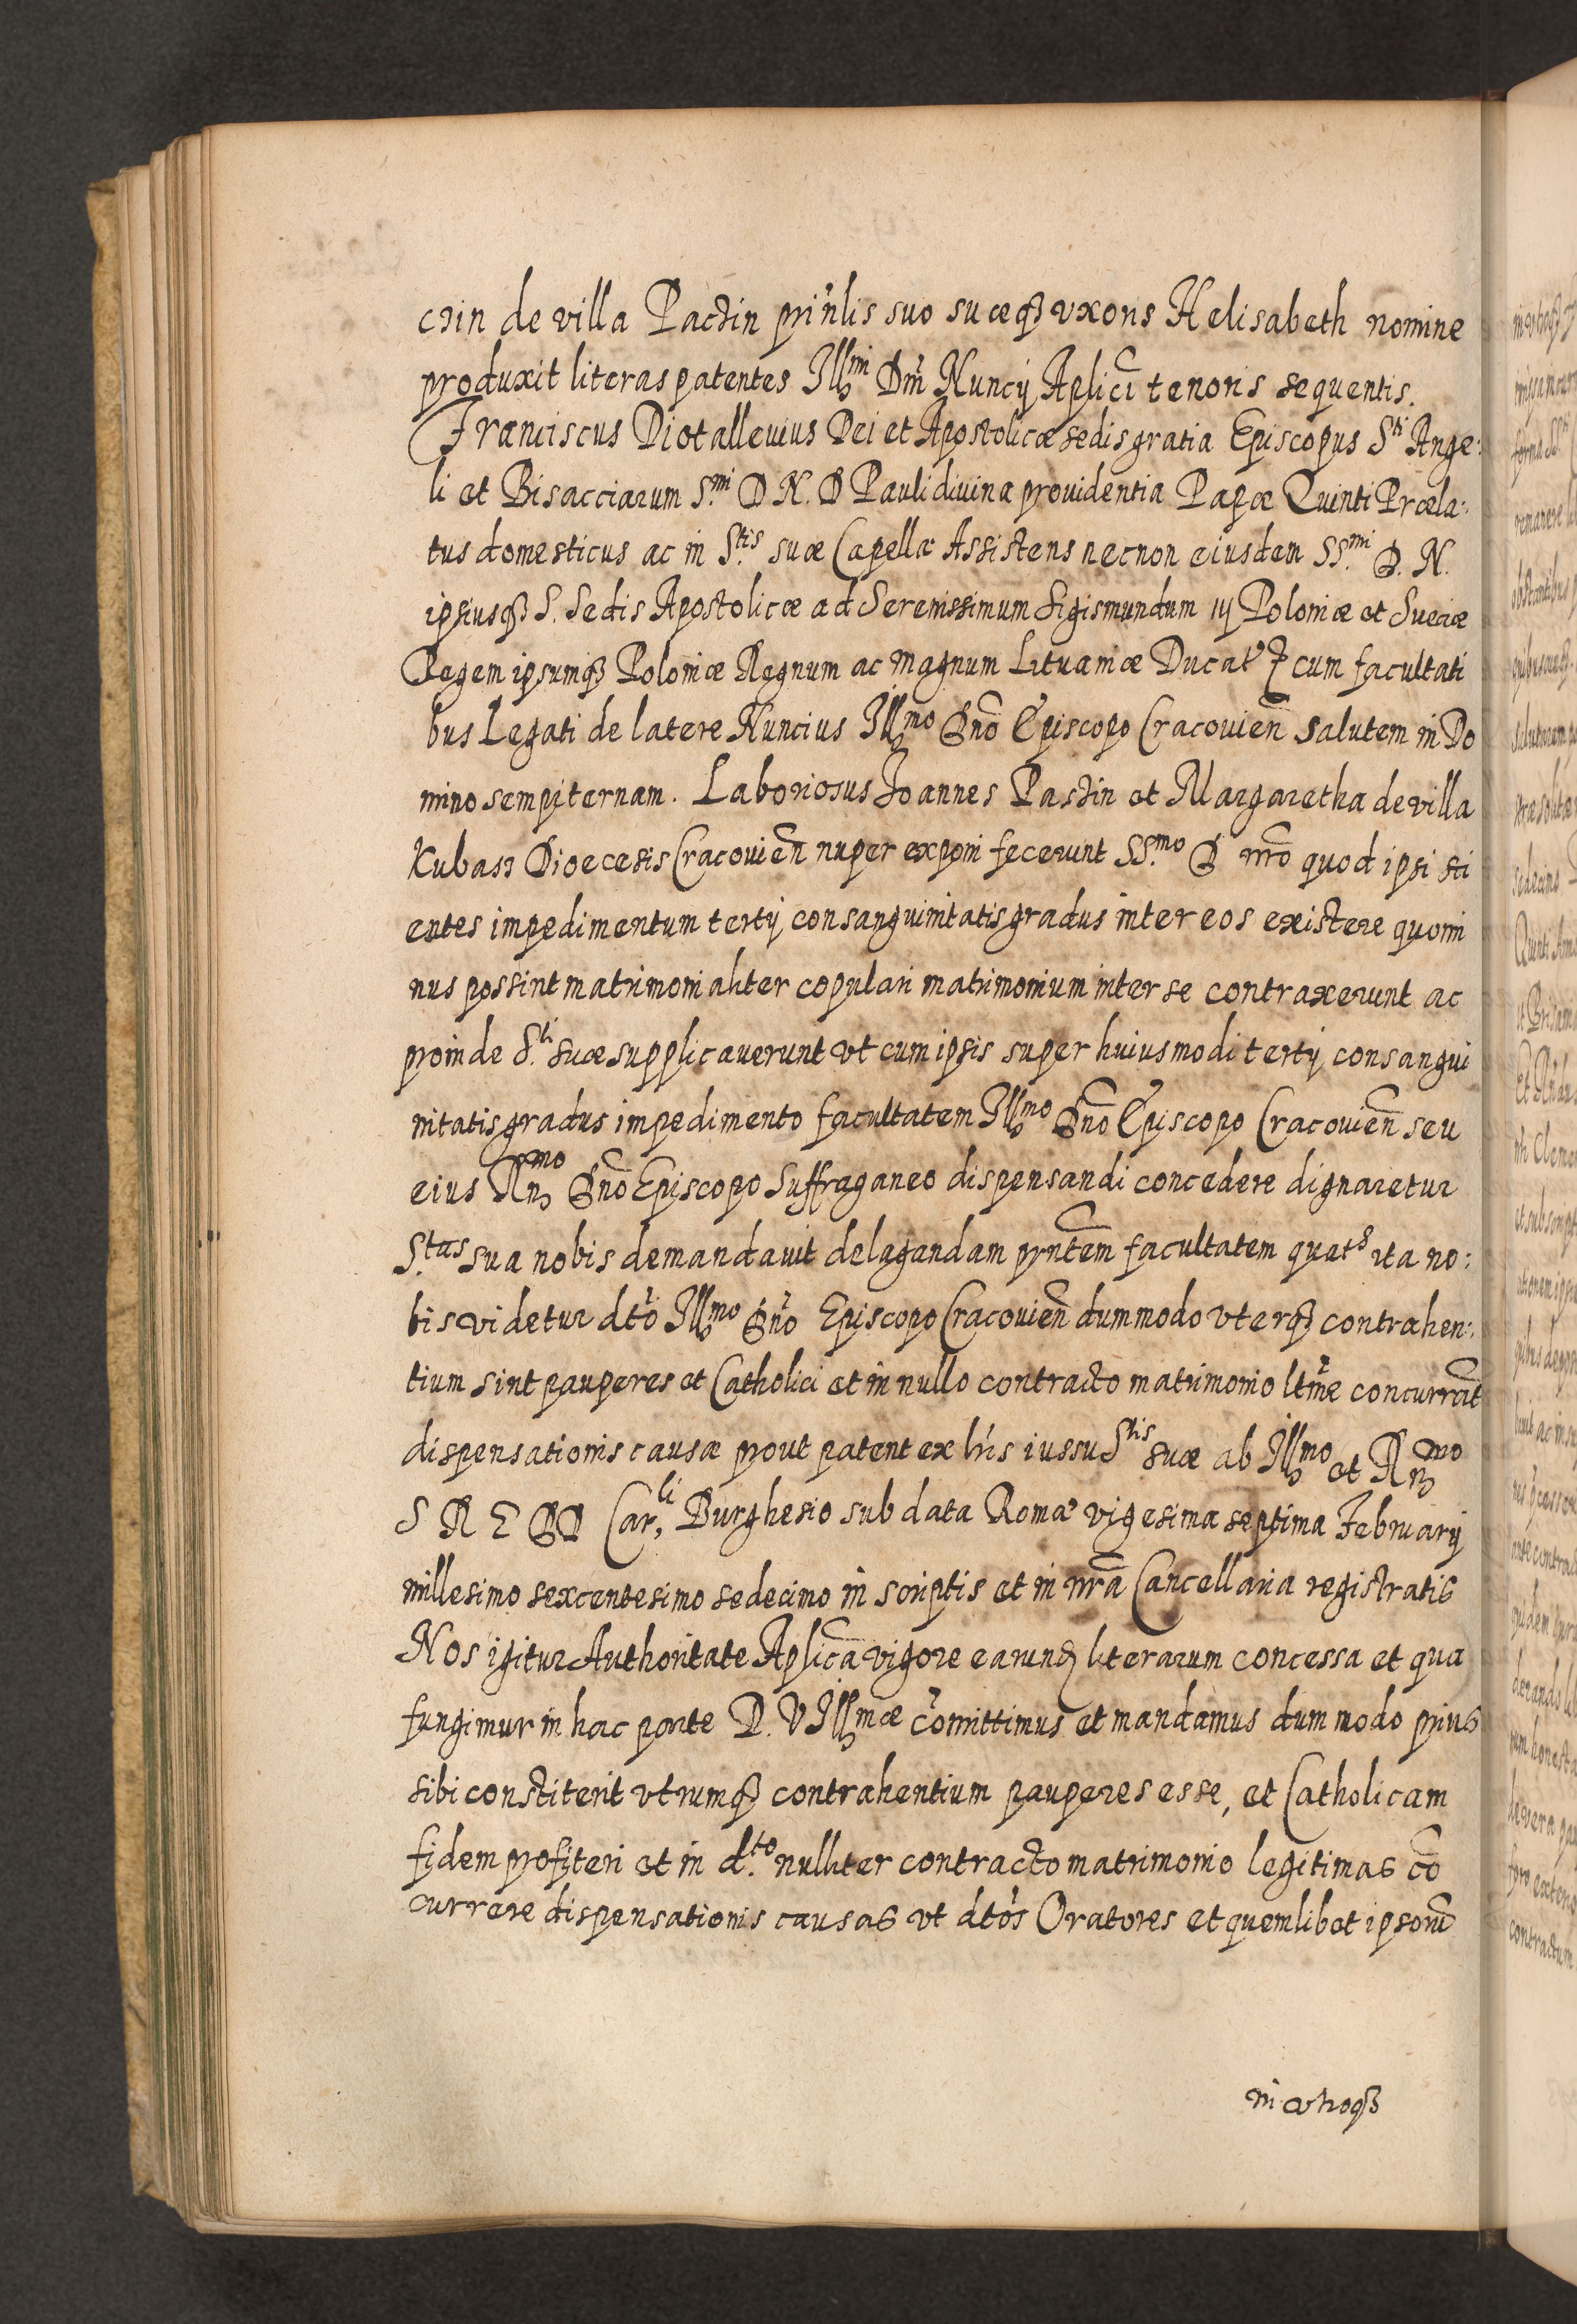 czin de villa Pactin pri'nlis suo suceqꝫ vxoris Helisabeth nomine
produxit literas patentes Illmi Dni Nuncij Aplici tenoris sequentis.
Franciscus Diotalleuius Dei et Apostolicæ sedis gratia Episcopus Sti Ange:
li et Bisacciarum S.mi D N. D Pauli diuina prouidentia Papæ Quinti Præla:
tus domesticus ac in S.tis suæ Capella Assistens necnon eiusdem SS.mi D. N.
ipsiusqꝫ S. Sedis Apostolicæ ad Serenissimum Sigismundum iij Poloniæ et Sueciæ
Regem ipsumqꝫ Poloniæ Regnum ac magnum Lituaniæ Ducatꝰ cum facultati
bus Legati de latere Nuncius Illmo Dno Episcopo Cracouien Salutem in Do
mino sempiternam. Laboriosus Joannes Pastin et Margaretha de villa
Kubasz Dioecesis Cracouien nuper exponi fecerunt SS.mo D nro quod ipsi sci
entes impedimentum tertij consanguinitatis gradus inter eos existere quomi
nus possint matrimonialiter copulari matrimonium inter se contraxerunt ac
proinde S.ti suæ supplicauerunt vt cum ipsis super huiusmodi tertij consangui
nitatis gradus impedimento facultatem Illmo Dno Episcopo Cracouien seu
eius Rmo Dno Episcopo Suffraganeo dispensandi concedere dignaretur
S.tas sua nobis demandauit delagandam pntem facultatem quatꝰ ita no:
bis videtur dto Illmo Dno Episcopo Cracouien dummodo vterqꝫ contrahen:
tium sint pauperes et Catholici et in nullo contracto matrimonio ltme concurrat
dispensationis causæ prout patent ex lris iussu Stis suæ ab Illmo et Rmo
S R E DD Car,li Burghesio sub data Romæ vigesima septima Februarij
millesimo sexcentesimo sedecimo in scriptis et in nra Cancellaria registratis
Nos igitur Authoritate Aplica vigore earund literarum concessa et qua
fungimur in hac parte D. V Illmæ comittimus et mandamus dummodo prius
sibi constiterit vtrumqꝫ contrahentium pauperes esse, et Catholicam
fidem profiteri et in d.to nulliter contracto matrimonio legitimas co
currere dispensationis causas vt dtos Oratores et quemlibet ipsoru
in vtroqꝫ